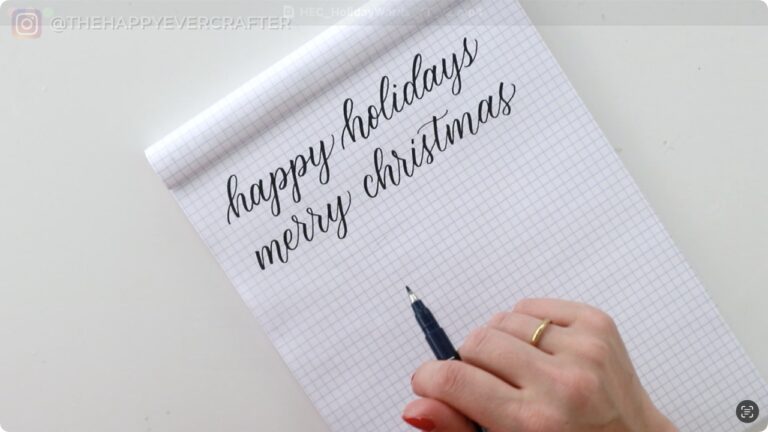 @THEHAPPYEVERCRAFTER
happy holidays
merry christmas